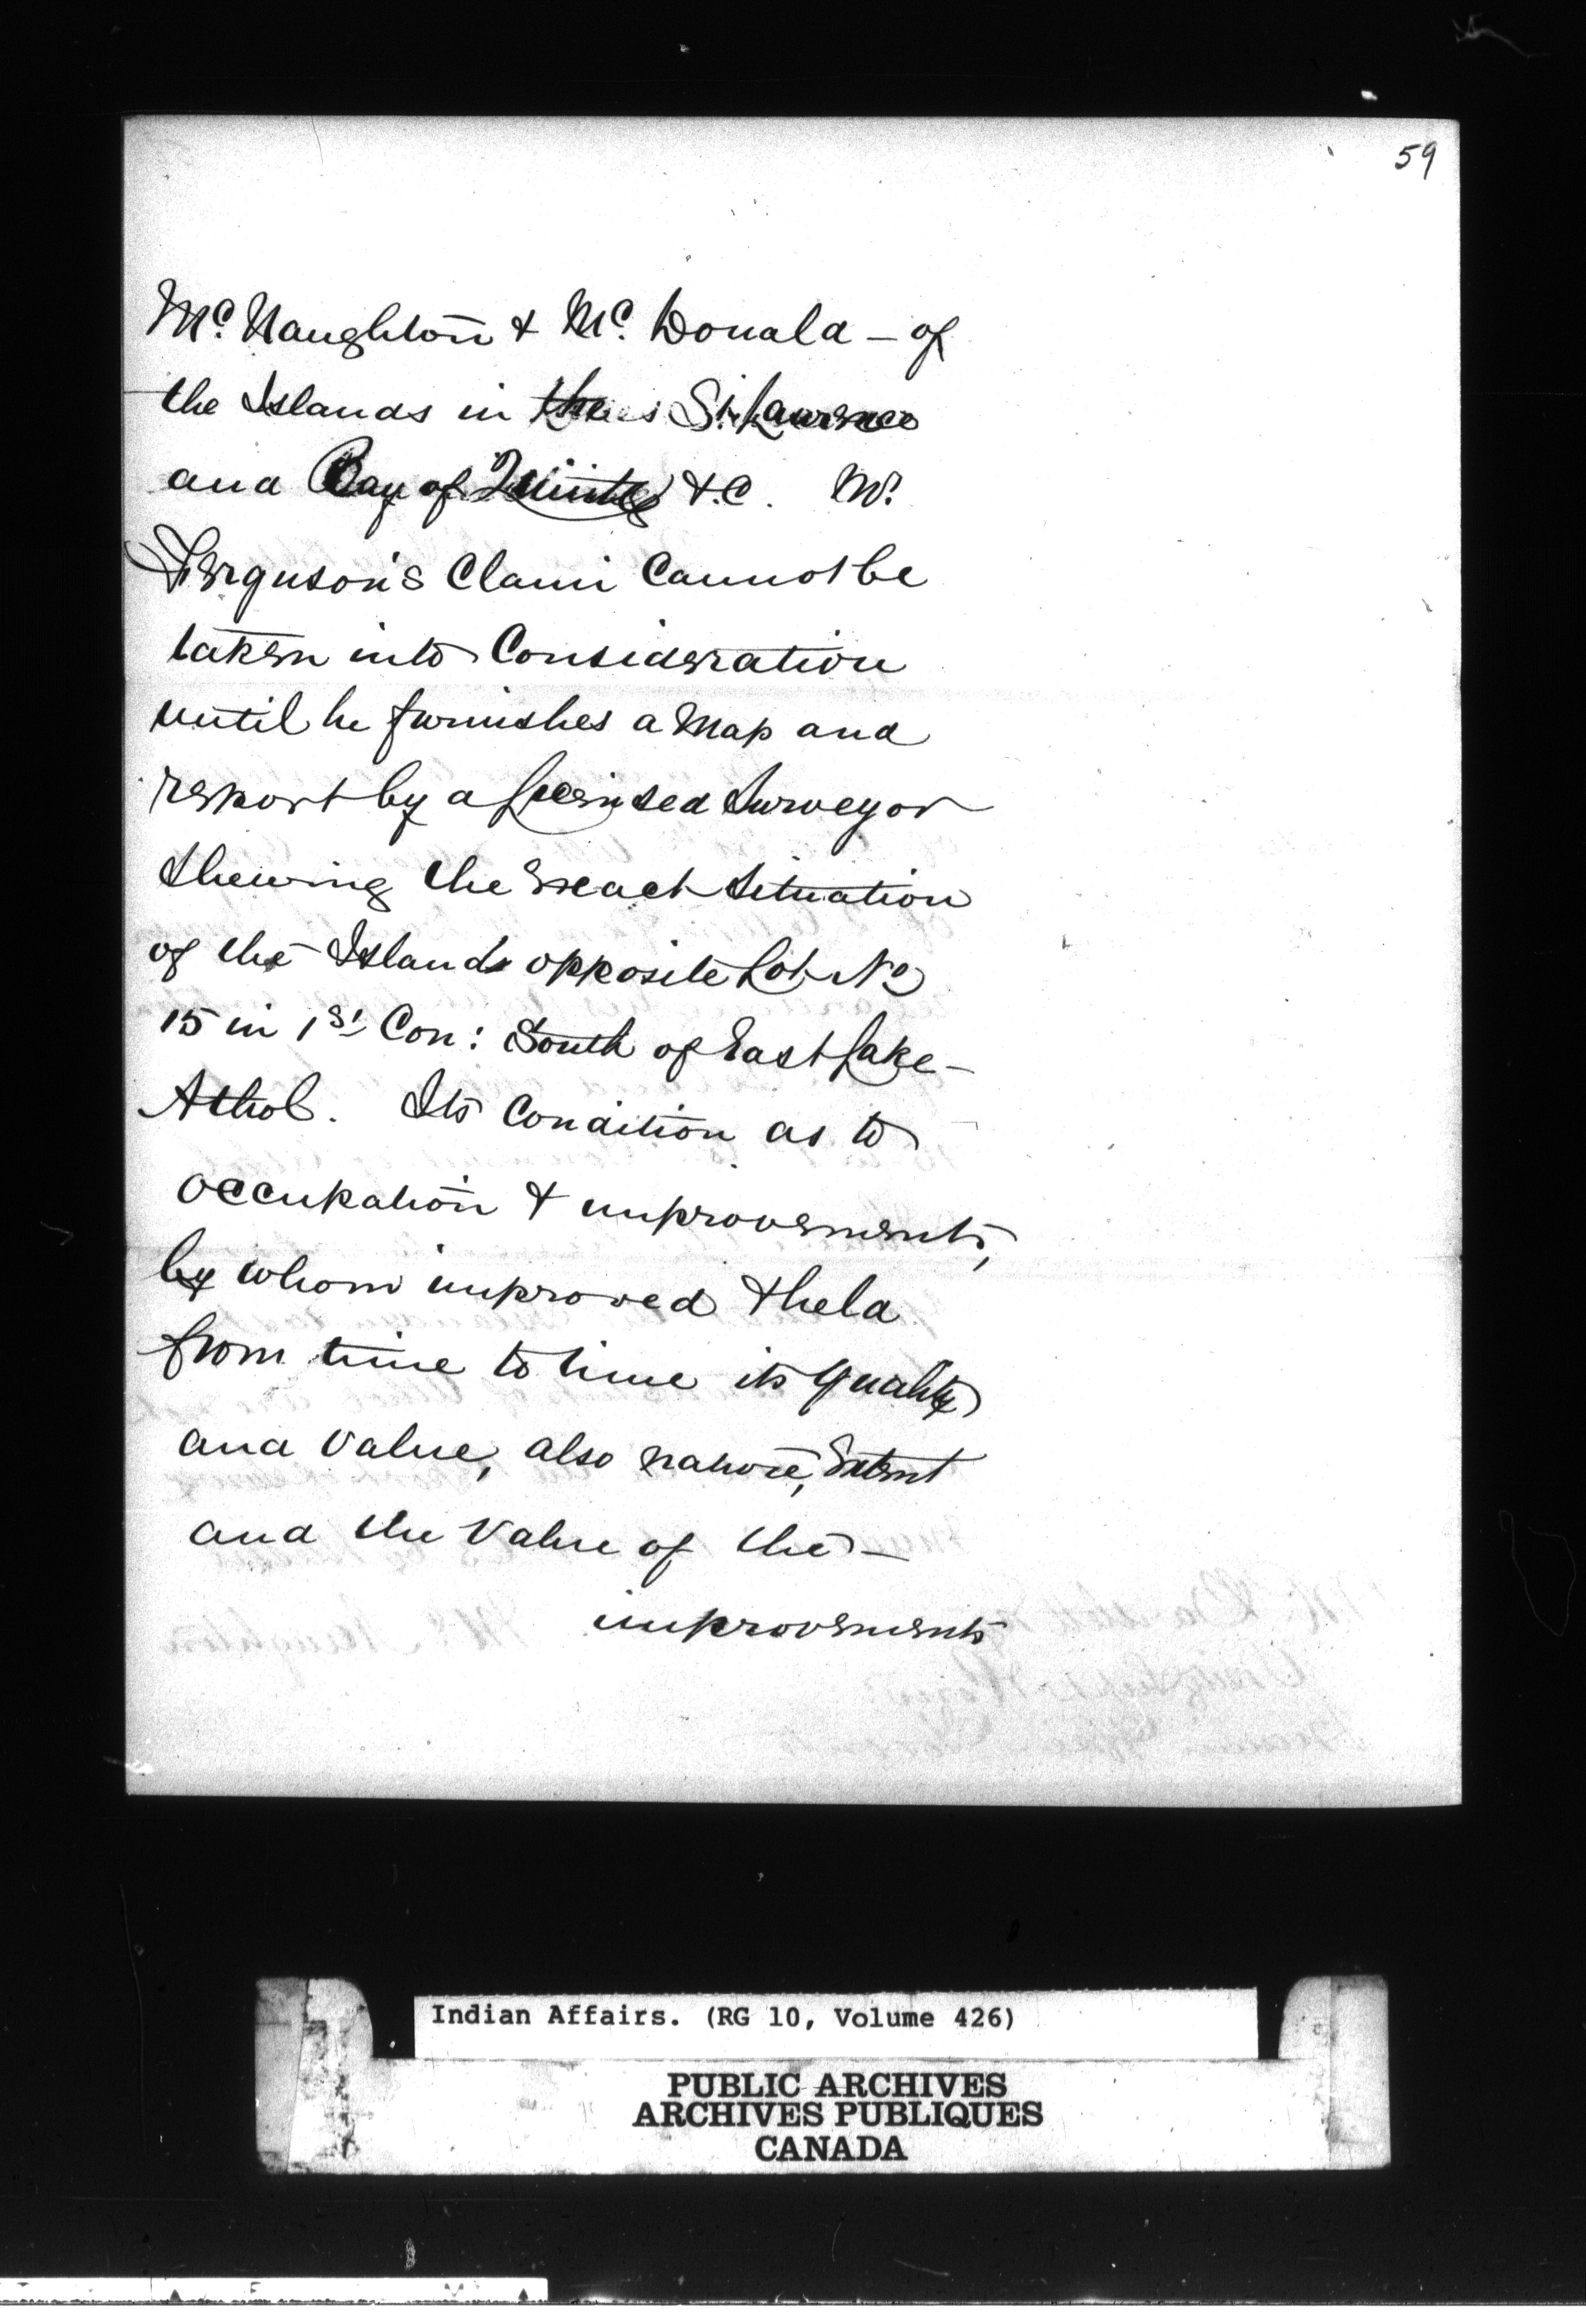 59
Mc. Naughton & Mc. Donald - of
the Islands in the St. Lawrence
and Bay of Quinte &.c. Mr.
Ferguson's Claim Cannot be
taken into Consideration
until he furnishes a Map and
report by a Licensed Surveyor
Shewing the exact Situation
of the Island opposite Lot No
15 in 1st Con: South of East Lake -
Athol. Its Condition as to
occupation & improvements,
by whom improved & held
from time to time its quality
and Value, also nature, Extent
and the Value of the -
improvements
Indian Affairs. (RG 10, Volume 426)
PUBLIC ARCHIVES
ARCHIVES PUBLIQUES
CANADA